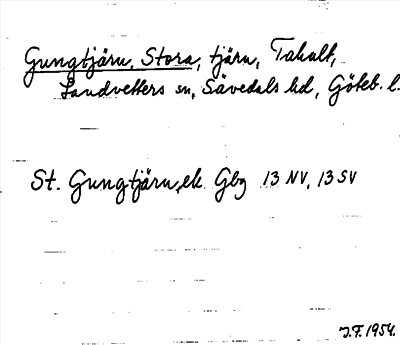 Gungtjärn, Stora, tjärn, Tahult,
Landvetters sn, Sävedals hd, Göteb. l.
St. Gungtjärn, ek. Gbg 13 NV, 13 SV
J.F. 1954.